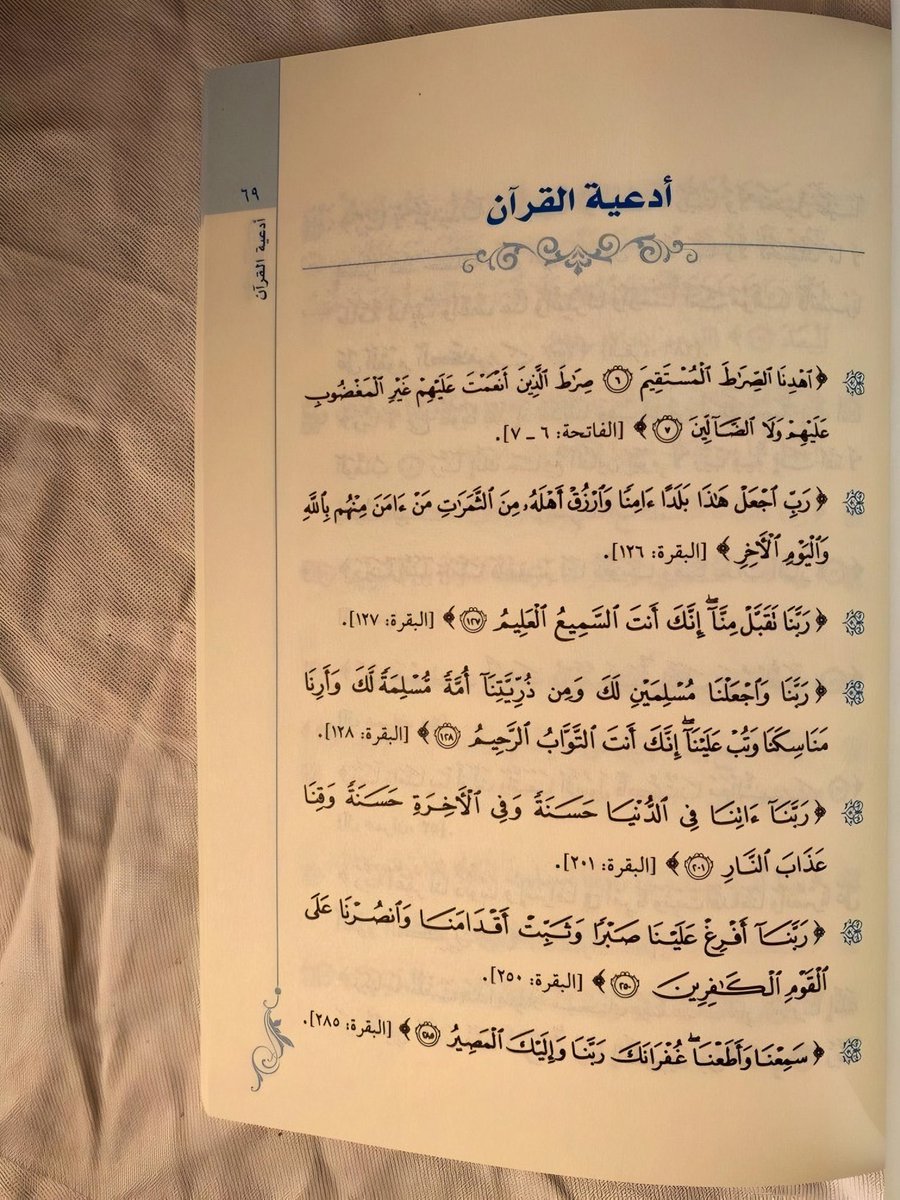 ٦٩
أدعية القرآن
أدعية القرآن
﴿ ٱهْدِنَا ٱلصِّرَٰطَ ٱلْمُسْتَقِيمَ ۝٦ صِرَٰطَ ٱلَّذِينَ أَنْعَمْتَ عَلَيْهِمْ غَيْرِ ٱلْمَغْضُوبِ
عَلَيْهِمْ وَلَا ٱلضَّآلِّينَ ۝٧ ﴾ [الفاتحة: ٦ ـ ٧].
﴿ رَبِّ ٱجْعَلْ هَٰذَا بَلَدًا ءَامِنًا وَٱرْزُقْ أَهْلَهُۥ مِنَ ٱلثَّمَرَٰتِ مَنْ ءَامَنَ مِنْهُم بِٱللَّهِ
وَٱلْيَوْمِ ٱلْأَخِرِ ﴾ [البقرة: ١٢٦].
﴿ رَبَّنَا تَقَبَّلْ مِنَّآ ۖ إِنَّكَ أَنتَ ٱلسَّمِيعُ ٱلْعَلِيمُ ۝١٢٧ ﴾ [البقرة: ١٢٧].
﴿ رَبَّنَا وَٱجْعَلْنَا مُسْلِمَيْنِ لَكَ وَمِن ذُرِّيَّتِنَآ أُمَّةً مُّسْلِمَةً لَّكَ وَأَرِنَا
مَنَاسِكَنَا وَتُبْ عَلَيْنَآ ۖ إِنَّكَ أَنتَ ٱلتَّوَّابُ ٱلرَّحِيمُ ۝١٢٨ ﴾ [البقرة: ١٢٨].
﴿ رَبَّنَآ ءَاتِنَا فِى ٱلدُّنْيَا حَسَنَةً وَفِى ٱلْأَخِرَةِ حَسَنَةً وَقِنَا
عَذَابَ ٱلنَّارِ ۝٢٠١ ﴾ [البقرة: ٢٠١].
﴿ رَبَّنَآ أَفْرِغْ عَلَيْنَا صَبْرًا وَثَبِّتْ أَقْدَامَنَا وَٱنصُرْنَا عَلَى
ٱلْقَوْمِ ٱلْكَٰفِرِينَ ۝٢٥٠ ﴾ [البقرة: ٢٥٠].
﴿ سَمِعْنَا وَأَطَعْنَا ۖ غُفْرَانَكَ رَبَّنَا وَإِلَيْكَ ٱلْمَصِيرُ ۝٢٨٥ ﴾ [البقرة: ٢٨٥].